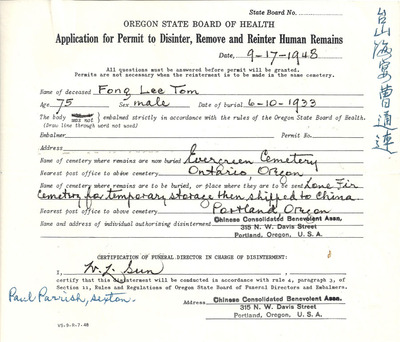 State Board No.
OREGON STATE BOARD OF HEALTH
Application for Permit to Disinter, Remove and Reinter Human Remains
Date, 9-17-1948
All questions must be answered before permit will be granted.
Permits are not necessary when the reinterment is to be made in the same cemetery.
Name of deceased Fong Lee Tom
Age 75 Sex male Date of burial 6-10-1933
The body was not embalmed strictly in accordance with the rules of the Oregon State Board of Health.
(Draw line through word not used)
Embalmer Permit No.
Address
Name of cemetery where remains are now buried Evergreen Cemetery
Nearest post office to above cemetery Ontario, Oregon
Name of cemetery where remains to be buried, or place where they are to be sent Lone Fir
Cemetery for temporary storage then shipped to China
Nearest post office to above cemetery Portland, Oregon
Name and address of individual authorizing disinterment Chinese Consolidated Benevolent Assn.
315 N. W. Davis Street
Portland, Oregon, U. S. A.
CERTIFICATION OF FUNERAL DIRECTOR IN CHARGE OF DISINTERMENT:
I, W. L. Sun
certify that this disinterment will be conducted in accordance with rule 4, paragraph 3, of
Section 11, Rules and Regulations of Oregon State Board of Funeral Directors and Embalmers.
Paul Parrish, sexton.
Address Chinese Consolidated Benevolent Assn.
315 N. W. Davis Street
Portland, Oregon, U. S. A.
VS.9-9-7-48
台山海宴曹通連